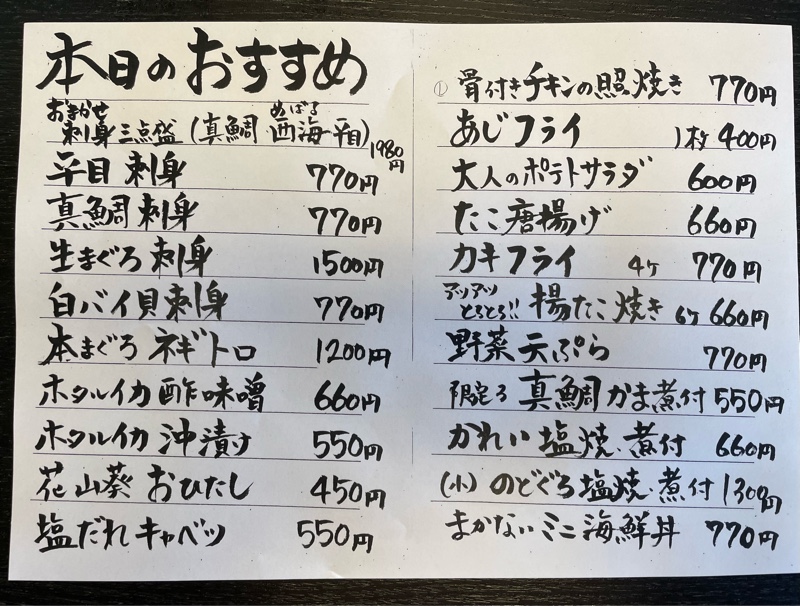 本日のおすすめ
おまかせ めばる
刺身三点盛(真鯛 西海 平目) 1980円
平目 刺身 770円
真鯛 刺身 770円
生まぐろ 刺身 1500円
白バイ貝刺身 770円
本まぐろ ネギトロ 1200円
ホタルイカ 酢味噌 660円
ホタルイカ 沖漬け 550円
花山葵 おひたし 450円
塩だれ キャベツ 550円
① 骨付きチキンの照焼き 770円
あじフライ 1枚 400円
大人のポテトサラダ 600円
たこ唐揚げ 660円
カキフライ 4ケ 770円
アツアツ
とろとろ!! 揚たこ焼き 6ケ 660円
野菜天ぷら 770円
限定3 真鯛かま煮付 550円
かれい塩焼・煮付 660円
(小) のどぐろ塩焼・煮付 1300円
まかないミニ海鮮丼 770円